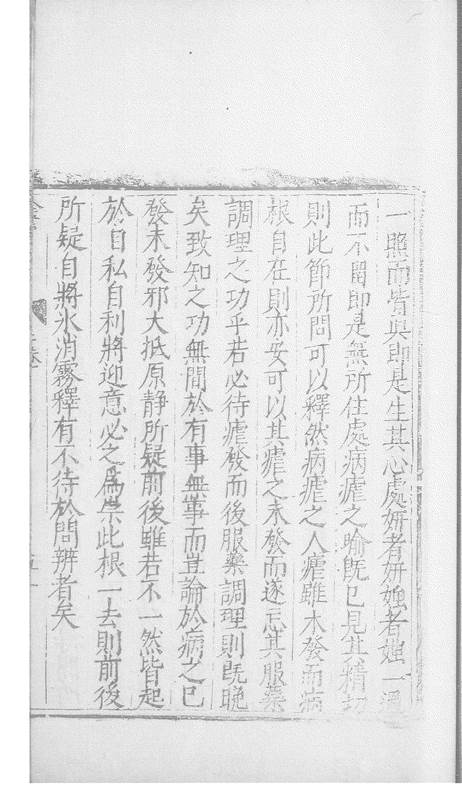 一照而皆眞即是生其心處妍者妍媸者媸一過
而不留即是無所住處病瘧之喻既已見其精切
則此節所問可以釋然病瘧之人瘧雖未發而病
根自在則亦安可以其瘧之未發而遂忘其服藥
調理之功乎若必待瘧發而後服藥調理則既晚
矣致知之功無間於有事無事而豈論於病之已
發未發邪大抵原静所疑前後雖若不一然皆起
於自私自利將迎意必之爲祟此根一去則前後
所疑自將氷消霧釋有不待於問辨者矣